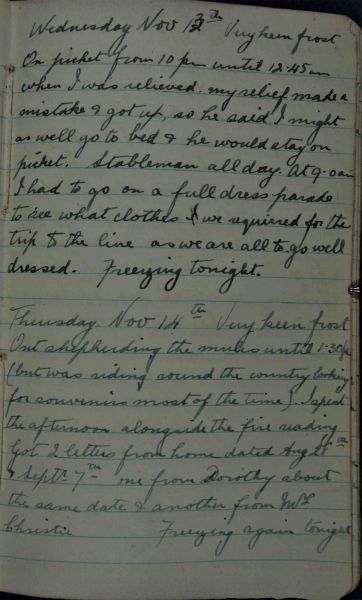 Wednesday Nov 13th Very keen frost
On picket from 10 pm until 12.45am
when I was relieved. my relief made a
mistake & got up, so he said I might
as well go to bed & he would stay on
picket. Stableman all day. At 9.0am
I had to go on a full dress parade
to see what clothes we required for the
trip to the line as we are all to go well
dressed. Freezing tonight.
Thursday. Nov 14th Very keen frost
Out shepherding the mules until 1.30p
(but was riding round the country looking
for souvenirs most of the time). I spent
the afternoon alongside the fire reading
Got 2 letters from home dated Augst
& Septr 7th one from Dorothy about
the same date & another from Mrs
Christie Freezing again tonight